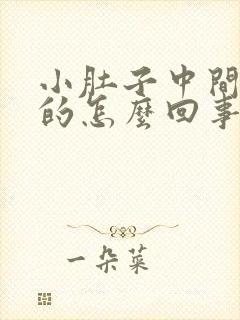 小肚子中間
的怎麼回事
一朵菜